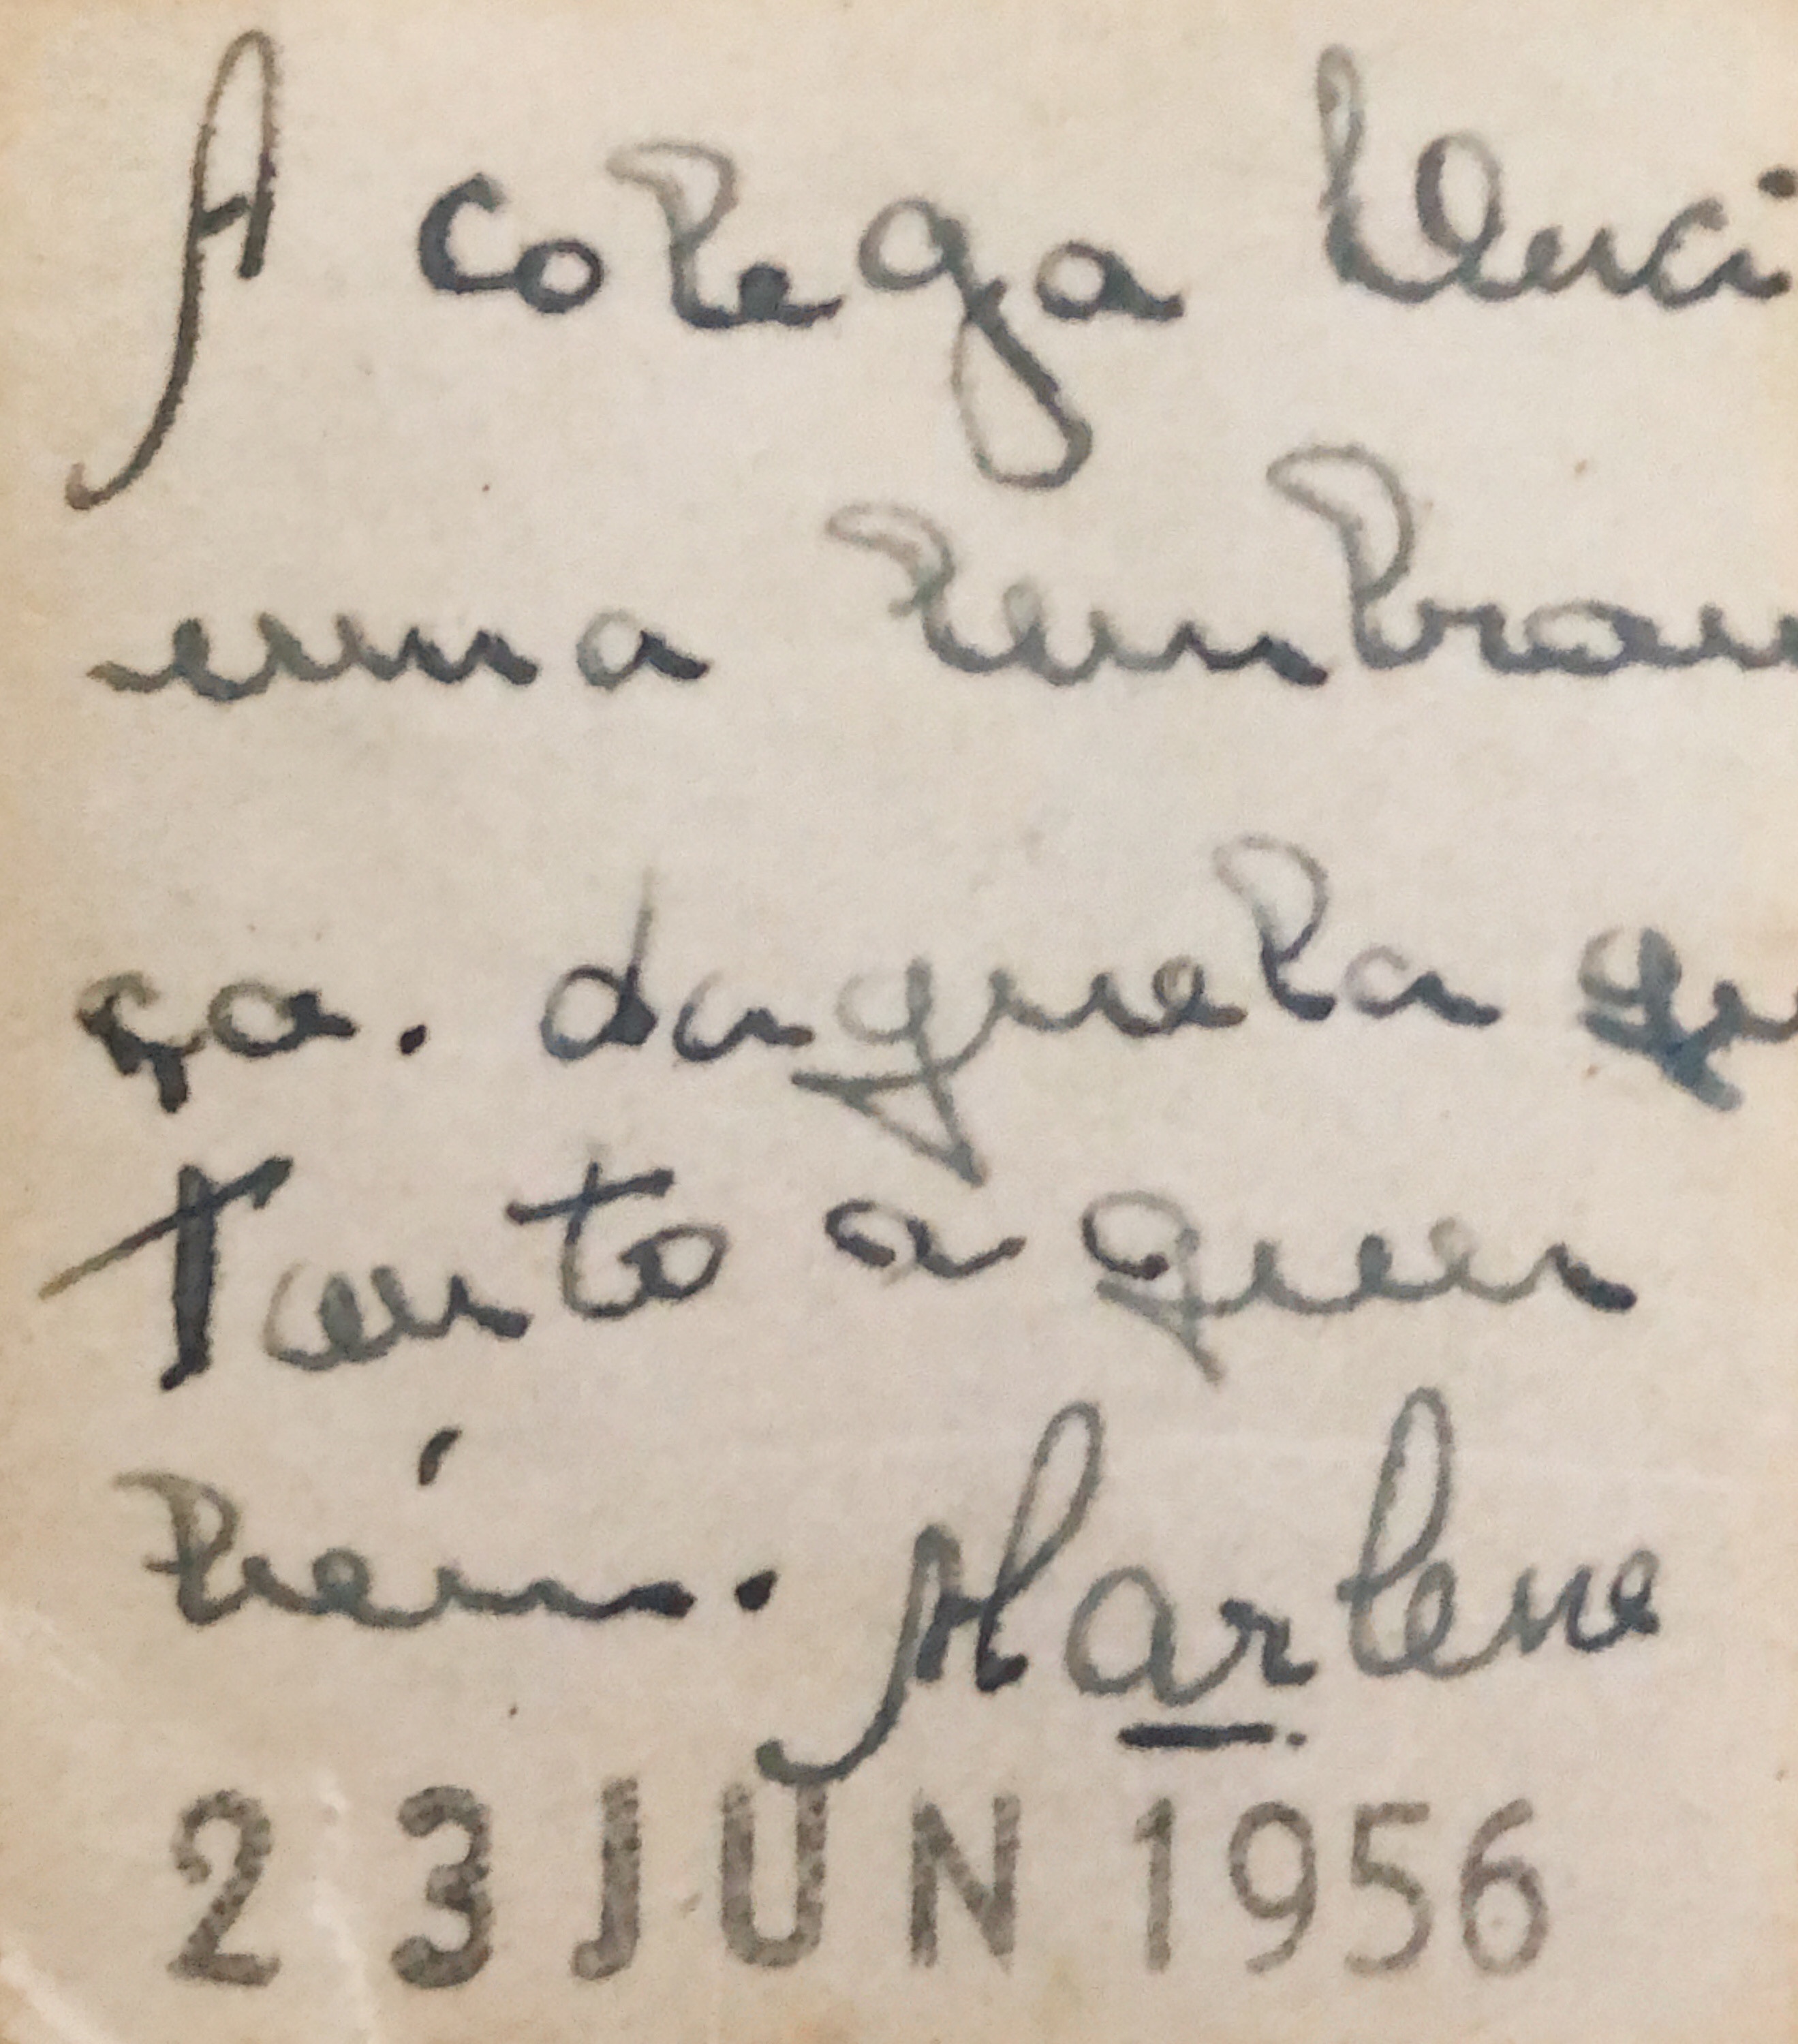 A colega Duci
uma lembran
ça. daquela qu
Tanto a quer
bém. Marlene
23 JUN 1956